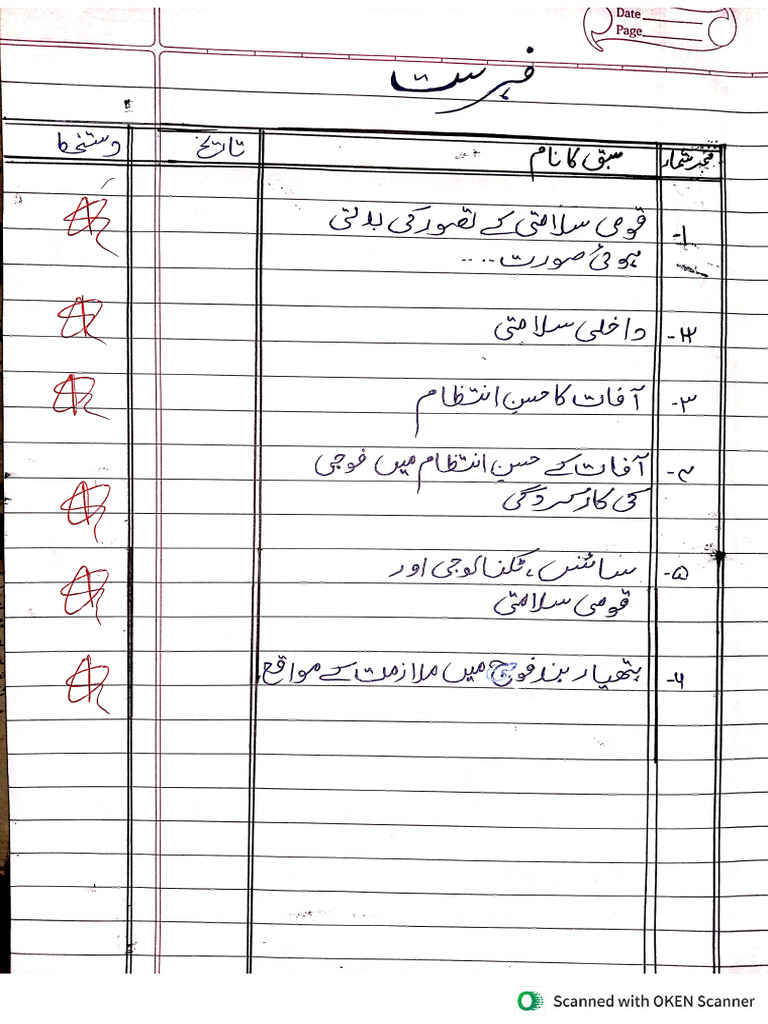 Date
Page
فہرست
نمبر شمار سبق کا نام تاریخ دستخط
۱- قومی سلامتی کے تصور کی بدلتی
ہوئی صورت ....
۲- داخلی سلامتی
۳- آفات کا حسنِ انتظام
۴- آفات کے حسنِ انتظام میں فوجی
کی کارکردگی
۵- سائنس، ٹکنالوجی اور
قومی سلامتی
۶- ہتھیار بند فوج میں ملازمت کے مواقع
Scanned with OKEN Scanner